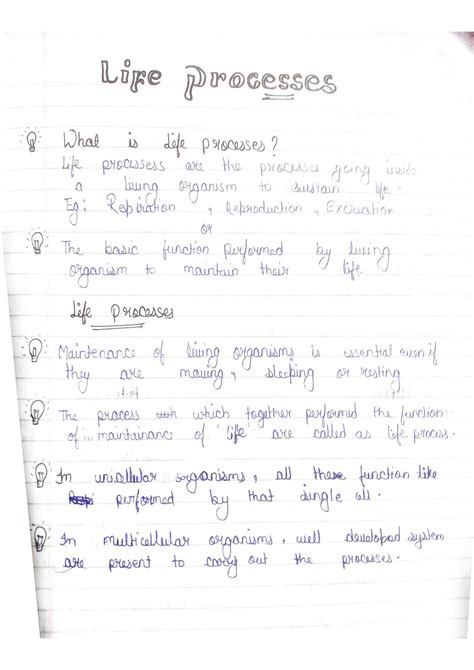 Life Processes
What is Life processes?
Life processess are the processes going inside
a living organism to sustain life.
Eg: Repiration, Reproduction, Excruation
or
The basic function performed by living
organism to maintain their life.
Life Processes
Maintenance of living organisms is essential even if
they are moving, sleeping or resting
The process which together performed the function
of maintainance of 'life' are called as life process.
In unicellular organisms, all these function like
performed by that single all.
In multicellular organisms, well developad system
are present to carry out the processes.